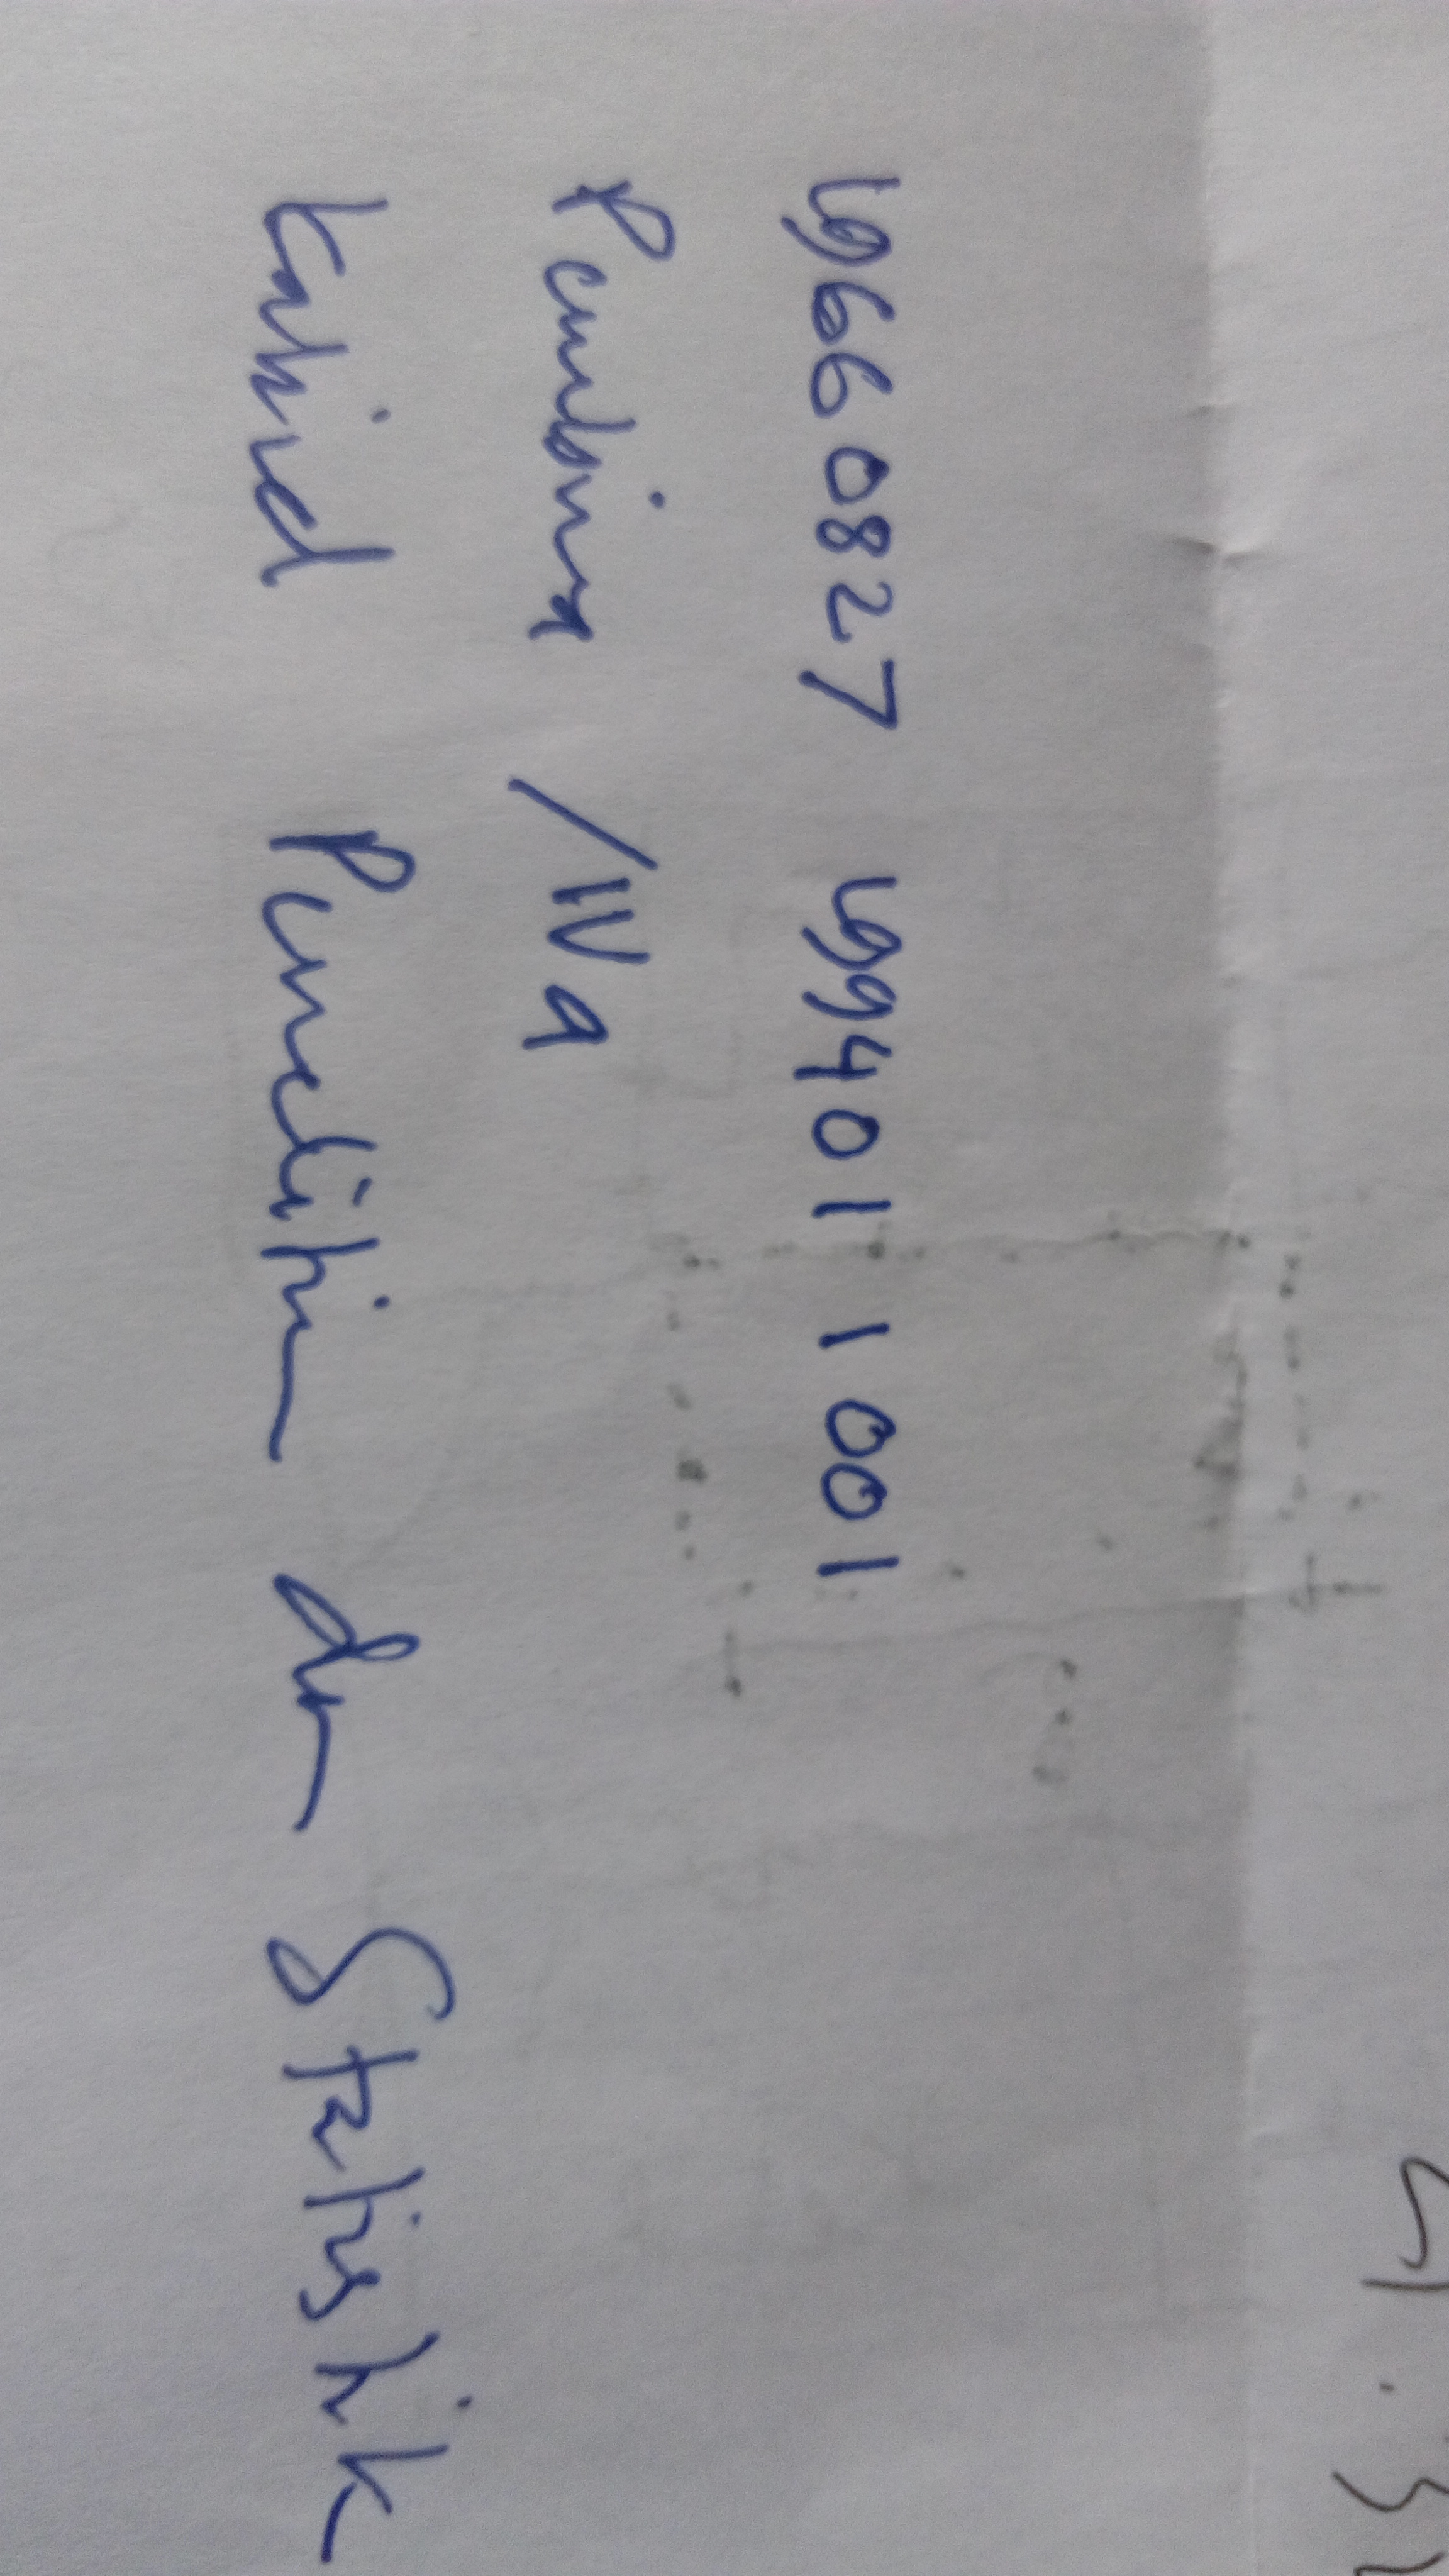 19660827 199401 1 001
Pembina /IVa
Kabid Penelitian dan Statistik